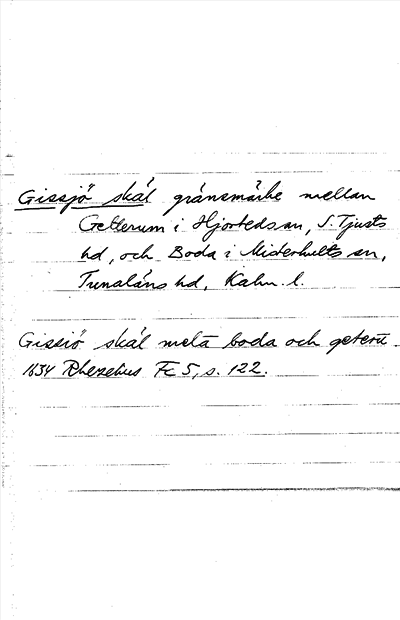 Gissjö skål gränsmärke mellan
Getterum i Hjorteds sn, S. Tjusts
hd, och Boda i Misterhults sn,
Tunaläns hd, Kalm. l.
Gissiö skål melā boda och geterū.
1634 Rhezelius Fc 5, s. 122.